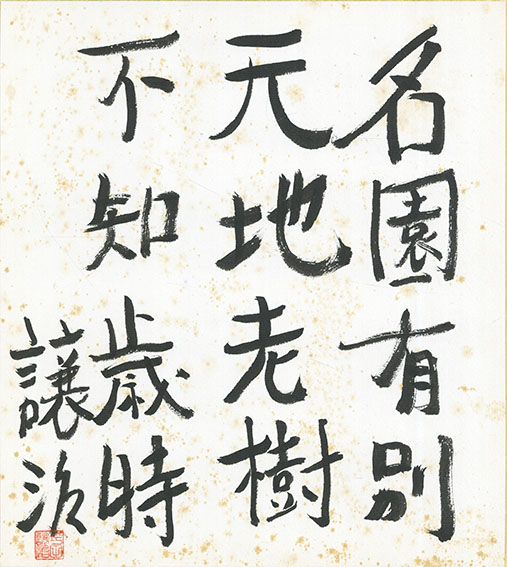 名園有別
元地老樹
不知歳時
讓治